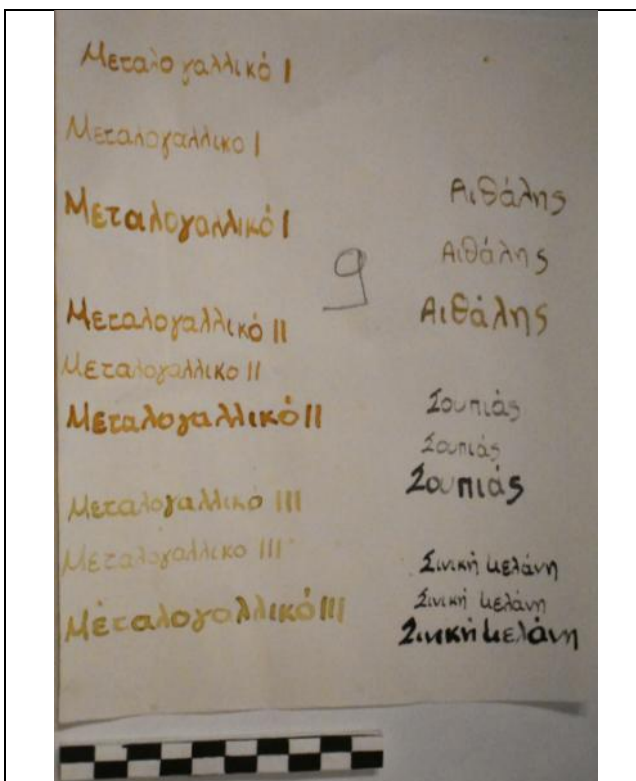 Μεταλογαλλικό I
Μεταλογαλλικο I
Μεταλογαλλικό I
Μεταλογαλλικό II
Μεταλογαλλικο II
Μεταλογαλλικό II
Μεταλογαλλικό III
Μεταλογαλλικο III
Μεταλογαλλικό III
9
Αιθάλης
Αιθάλης
Αιθάλης
Σουπιάς
Σουπιάς
Σουπιάς
Σινική μελάνη
Σινική μελάνη
Σινική μελάνη